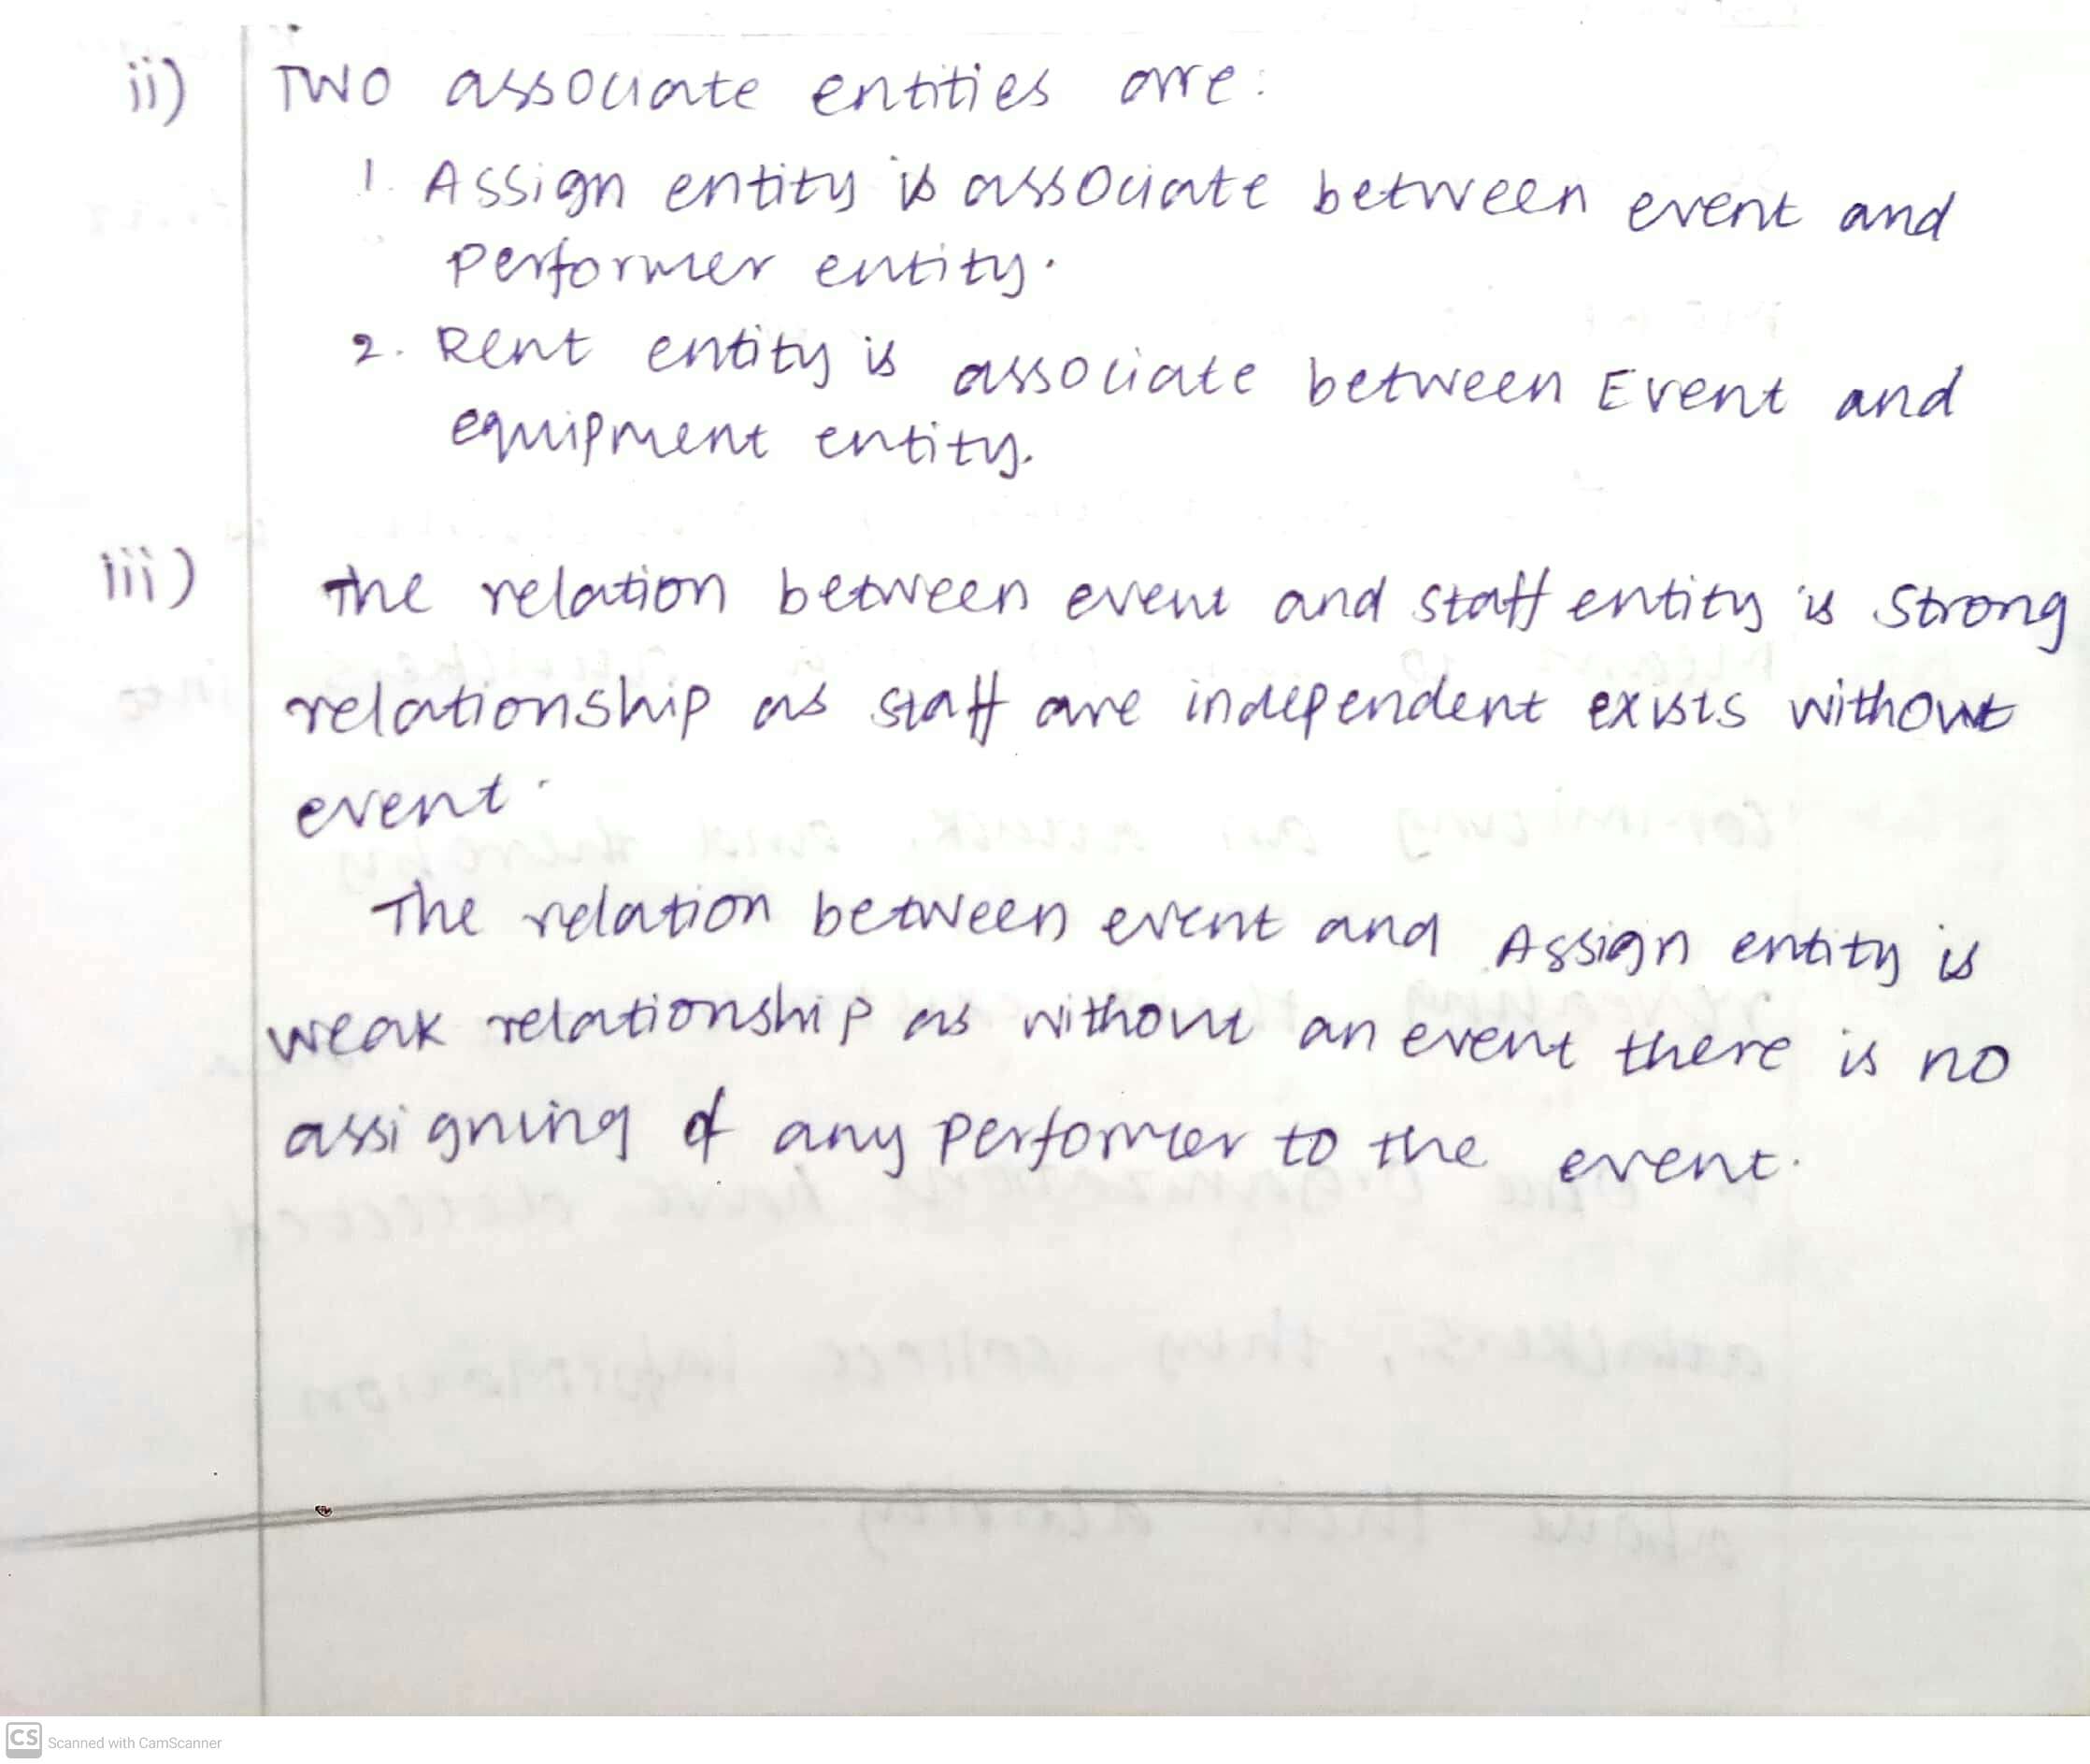 ii) Two associate entities are:
1. Assign entity is associate between event and
performer entity.
2. Rent entity is associate between Event and
equipment entity.
iii) The relation between event and staff entity is strong
relationship as staff are independent exists without
event.
The relation between event and Assign entity is
weak relationship as without an event there is no
assigning of any performer to the event.
CS Scanned with CamScanner